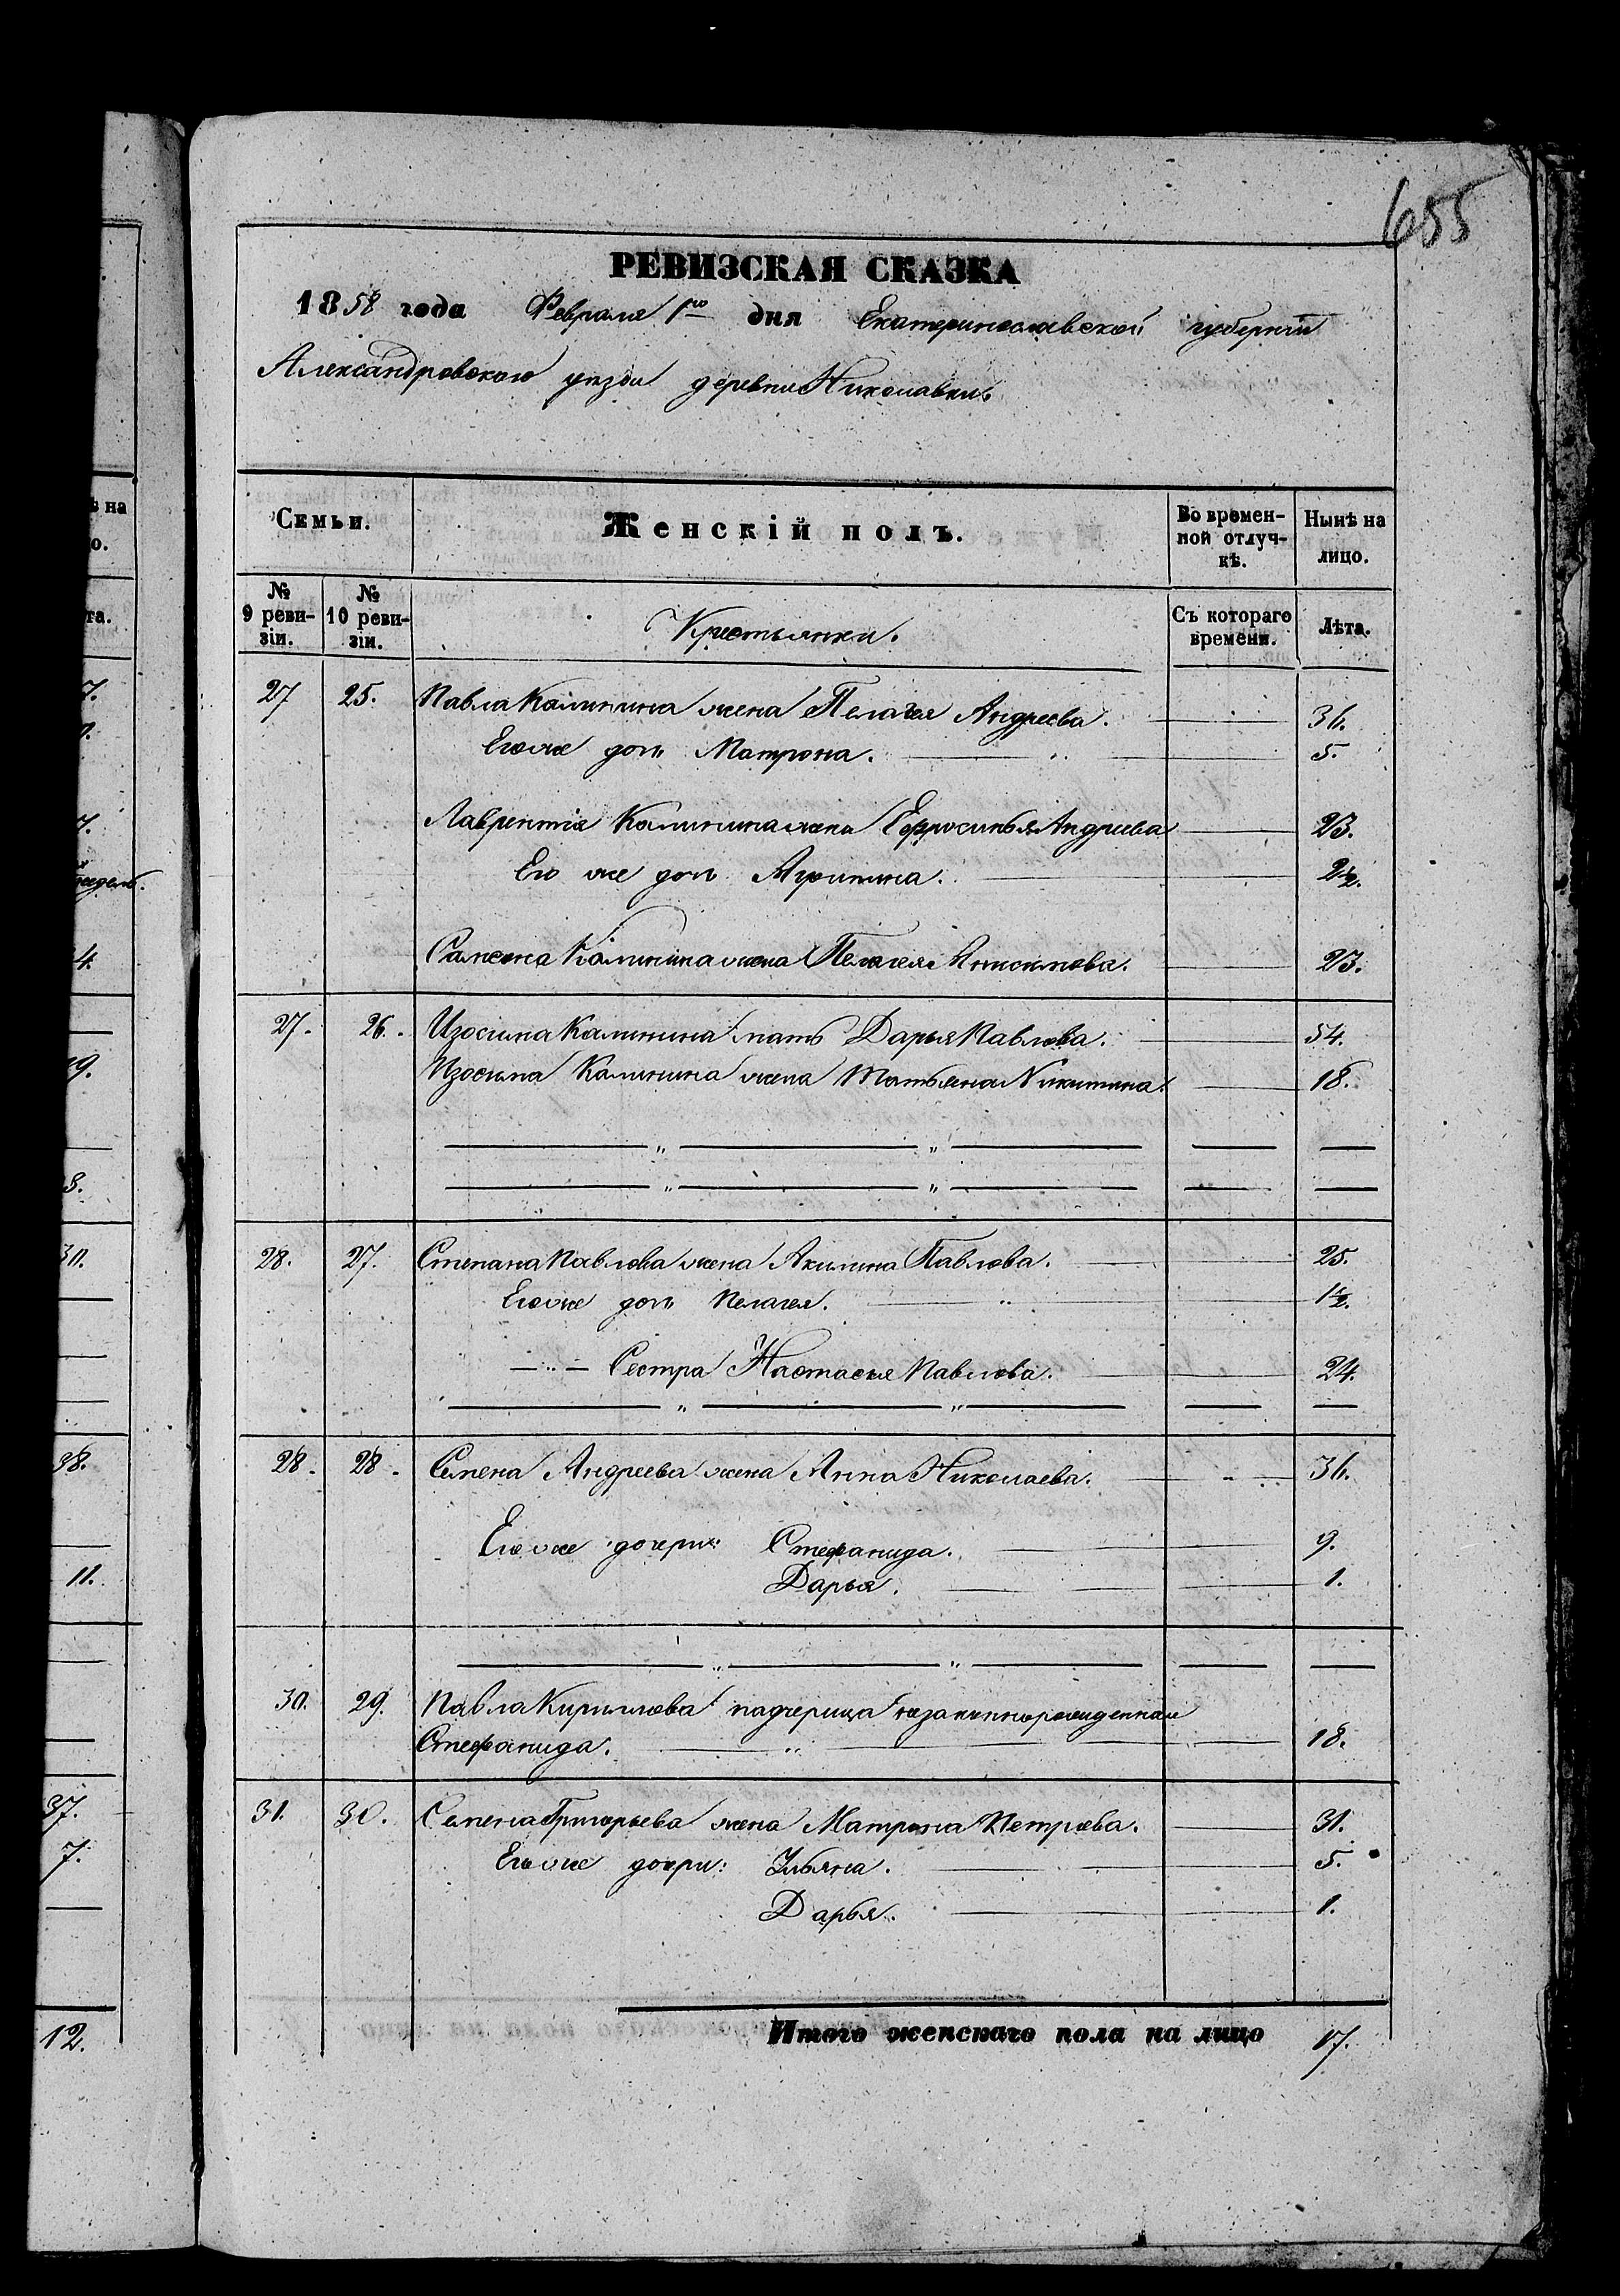 655
РЕВИЗСКАЯ СКАЗКА
1858 года Февраля 1го дня Екатеринославской губернии
Александровского уезда деревни Николавки
Семьи. Женскій полъ. Во времен-ной отлуч-кѣ. Нынѣ на лицо.
№ 9 реви-зіи. № 10 реви-зіи. Крестьянки. Съ котораго времени. Лѣта.
27 25. Павла Калинина жена Пелагея Андреева. 36.
Его же доч Матрона. 5.
Лаврентія Калинина жена Ефросинья Андреева 23.
Его же доч 2½.
Калинина жена Пелагея Анисимова. 23.
27. 26. Изосима Калинина мать Дарья Павлова. 54.
Изосима Калинина жена Татьяна Никитина. 18.
28. 27. Степана Павлова жена Акилина Павлова. 25.
Его же доч Пелагея. 1½.
—"— Сестра Настасья Павлова. 24.
28. 28. Семена Андреева жена Анна Николаева. 36.
Его же дочери: Стефанида. 9.
Дарья. 1.
30. 29. Павла Кирилова падчерица незаконнорожденная
Стефанида. 18.
31. 30. Семена Григорьева жена Матрона Петрова. 31.
Его же дочри: Ульяна. 5.
Дарья. 1.
Итого женскаго пола на лицо 17.
ѣ на
о.
та.
7.
7.
4.
19.
8.
30.
38.
11.
37.
7.
12.